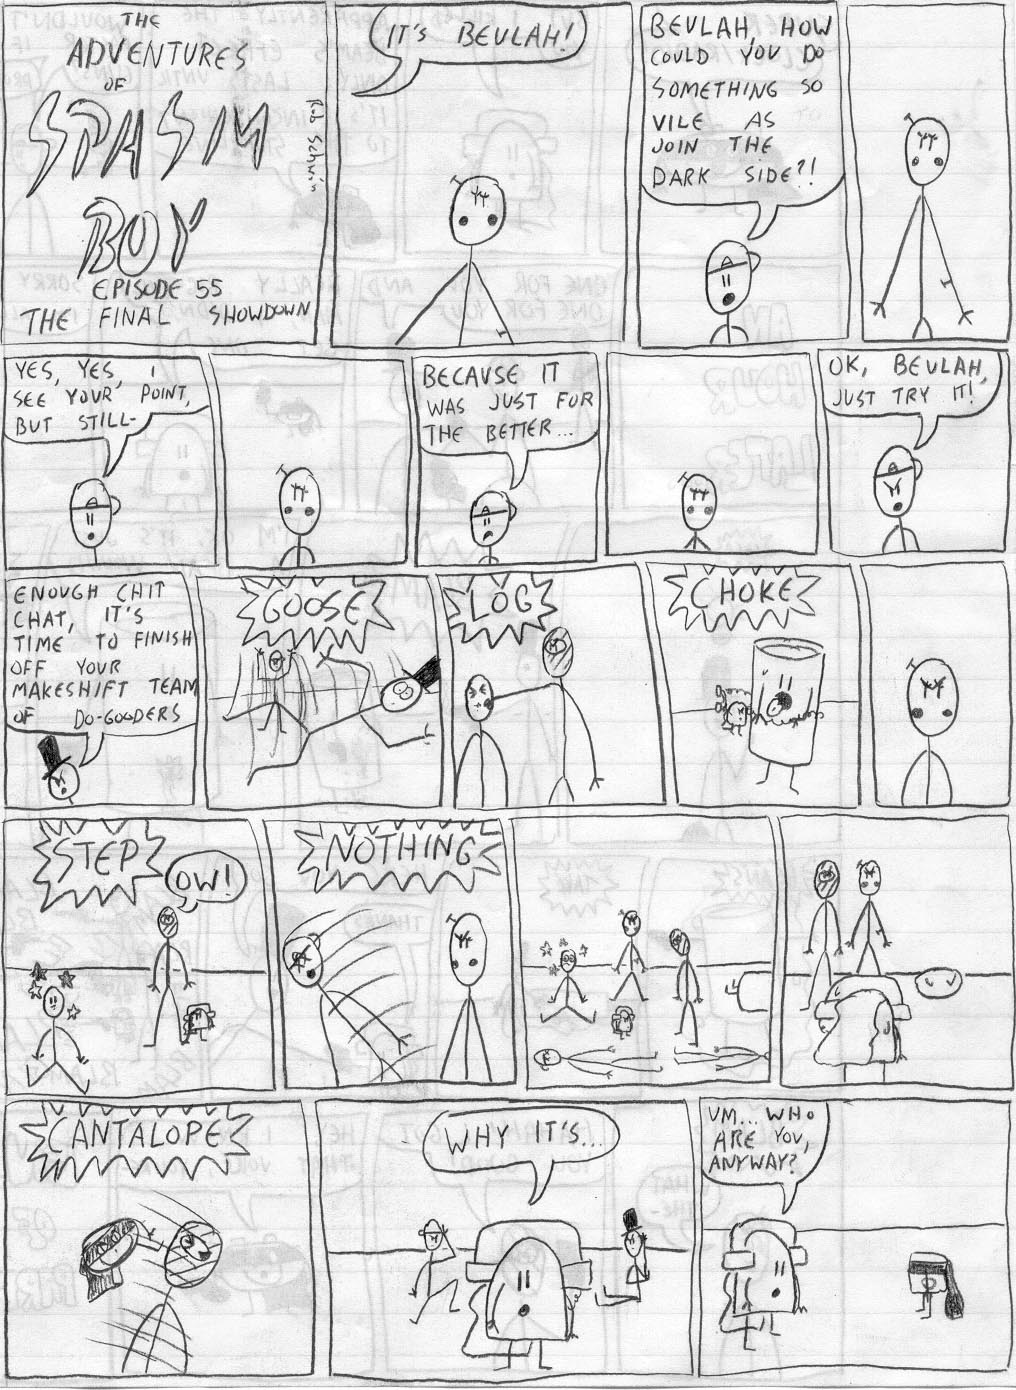 THE
ADVENTURES
OF
SPASIM
BOY
EPISODE 55
THE FINAL SHOWDOWN
IT'S BEULAH!
BEULAH, HOW
COULD YOU DO
SOMETHING SO
VILE AS
JOIN THE
DARK SIDE?!
YES, YES, I
SEE YOUR POINT,
BUT STILL-
BECAUSE IT
WAS JUST FOR
THE BETTER...
OK, BEULAH,
JUST TRY IT!
ENOUGH CHIT
CHAT, IT'S
TIME TO FINISH
OFF YOUR
MAKESHIFT TEAM
OF DO-GOODERS
GOOSE
LOG
CHOKE
STEP
OW!
NOTHING
CANTALOPE
WHY IT'S...
UM... WHO
ARE YOU,
ANYWAY?